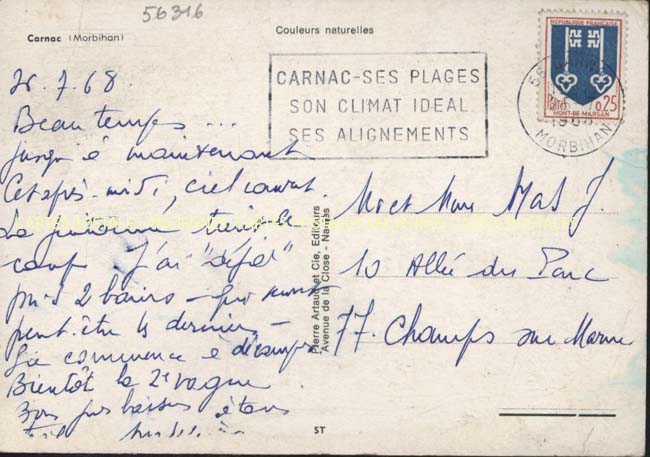 56316
Carnac (Morbihan)
Couleurs naturelles
CARNAC-SES PLAGES
SON CLIMAT IDEAL
SES ALIGNEMENTS
REPUBLIQUE FRANÇAISE
0,25
MONT-DE-MARSAN
MORBIHAN
26.7.68
Beau temps...
jusqu'à maintenant
Cet après-midi, ciel couvert.
La
coup. J'ai "déjà"
pris 2 bains - qui seront
peut-être les derniers -
commence à décamper
Bientôt la 2e vague
Bons baisers à tous
Pierre Artaud et Cie, Editeurs
Avenue de la Close - Nantes
Mr et Mme Mas J.
10 Allée du Parc
77. Champs sur Marne
ST